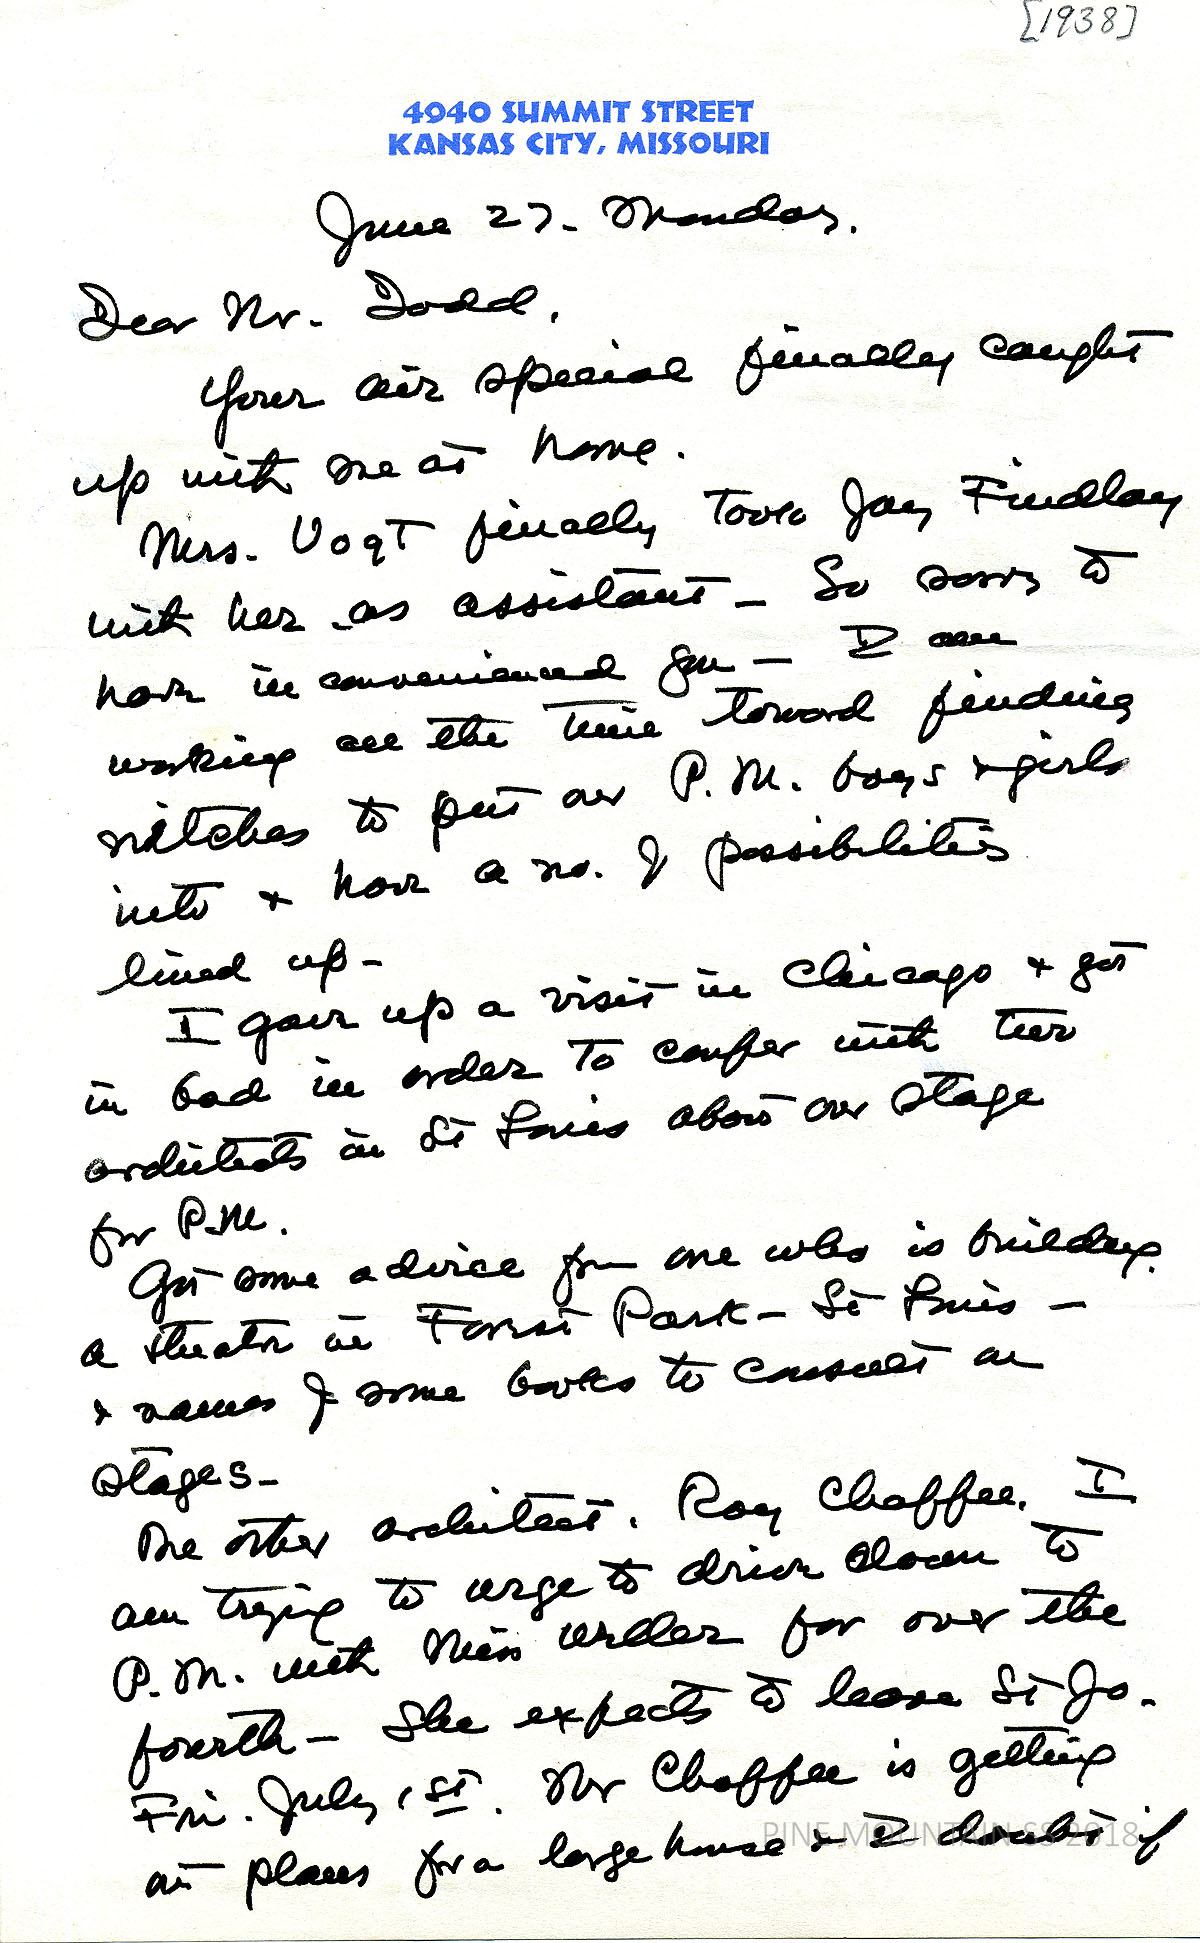 [1938]
4940 SUMMIT STREET
KANSAS CITY, MISSOURI
June 27 - Monday.
Dear Mr. Dodd,
Your air special finally caught
up with me at home.
Mrs. Vogt finally took Jay Findlay
with her - as assistant - So sorry to
have inconvenienced you - I am
working all the time toward finding
nitches to put our P.M. boys & girls
into & have a no. of possibilities
lined up -
I gave up a visit in Chicago & got
in bad in order to confer with two
architects in St Louis about our stage
for P.M.
Got some advice from one who is building
a theater in Forest Park - St Louis -
& names of some books to consult on
stages -
The other architect. Roy Chaffee, I
am trying to urge to drive down to
P.M. with Miss Weller for over the
fourth - She expects to leave St Jo -
Fri. July 1st. Mr Chaffee is getting
out plans for a large house & I doubt if
PINE MOUNTAIN SS 2018